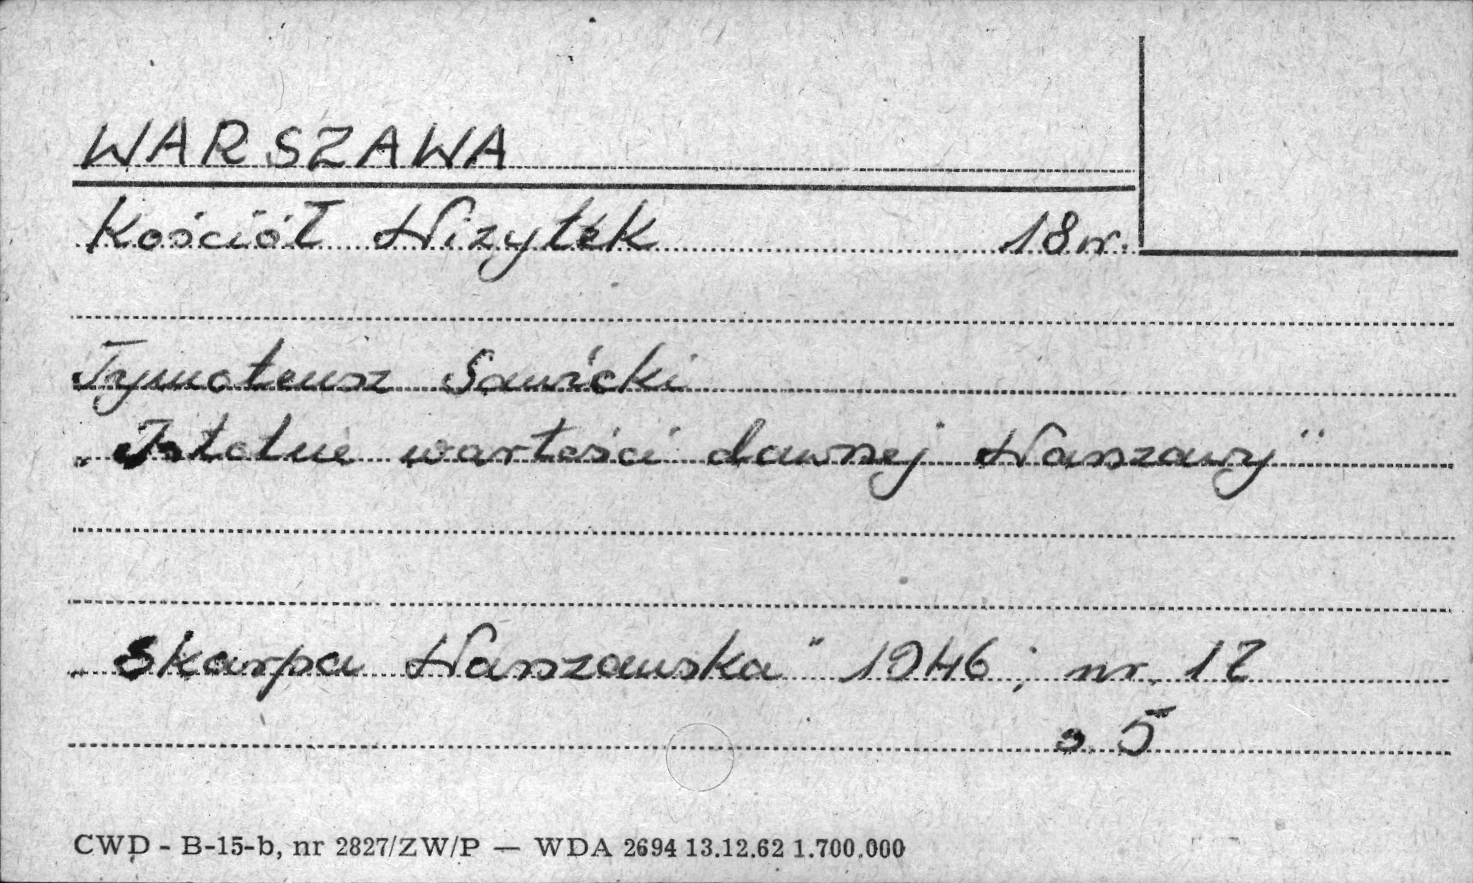 WARSZAWA
Kościół Wizytek 18 w.
Tymoteusz Sawicki
"Istotne wartości dawnej Warszawy"
"Skarpa Warszawska" 1946; nr. 12
s. 5
CWD - B-15-b, nr 2827/ZW/P — WDA 2694 13.12.62 1.700.000